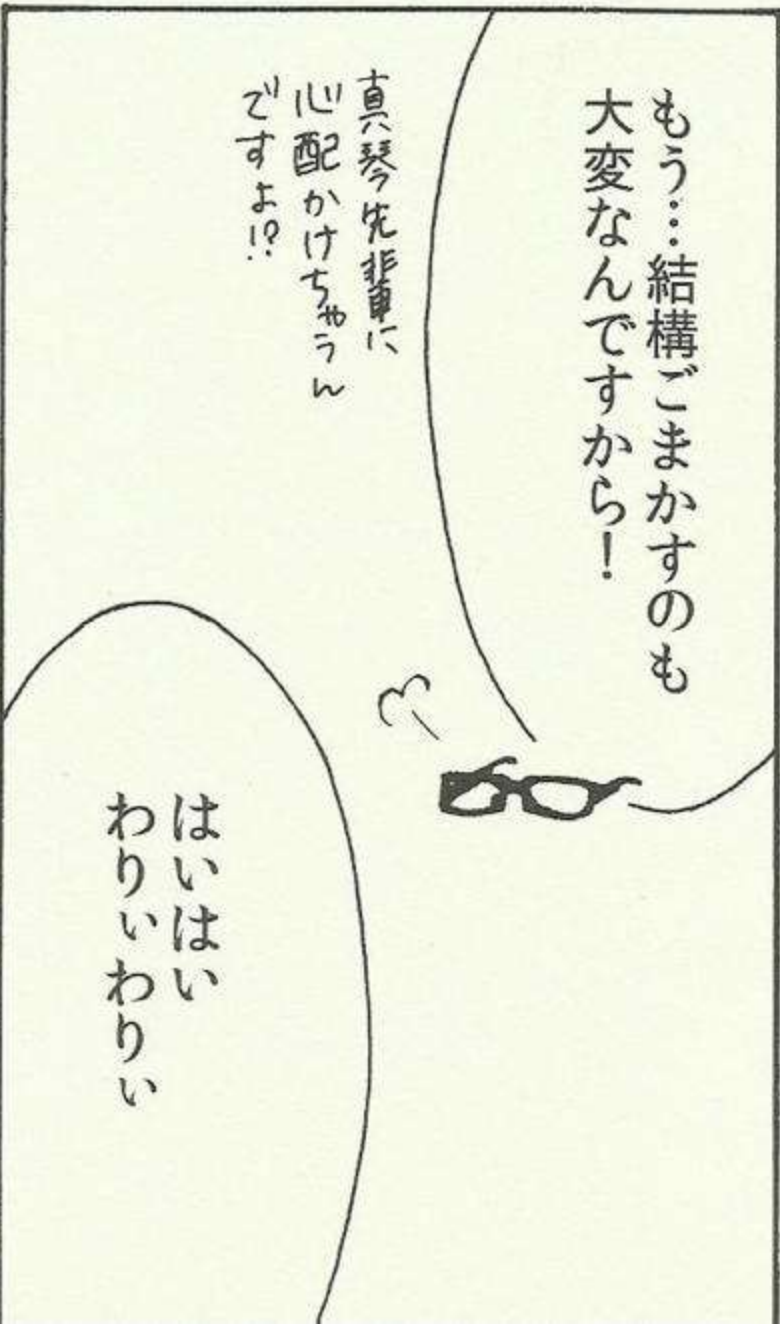 もう…結構ごまかすのも
大変なんですから！
真琴先輩に
心配かけちゃうん
ですよ!?
はいはい
わりぃわりぃ